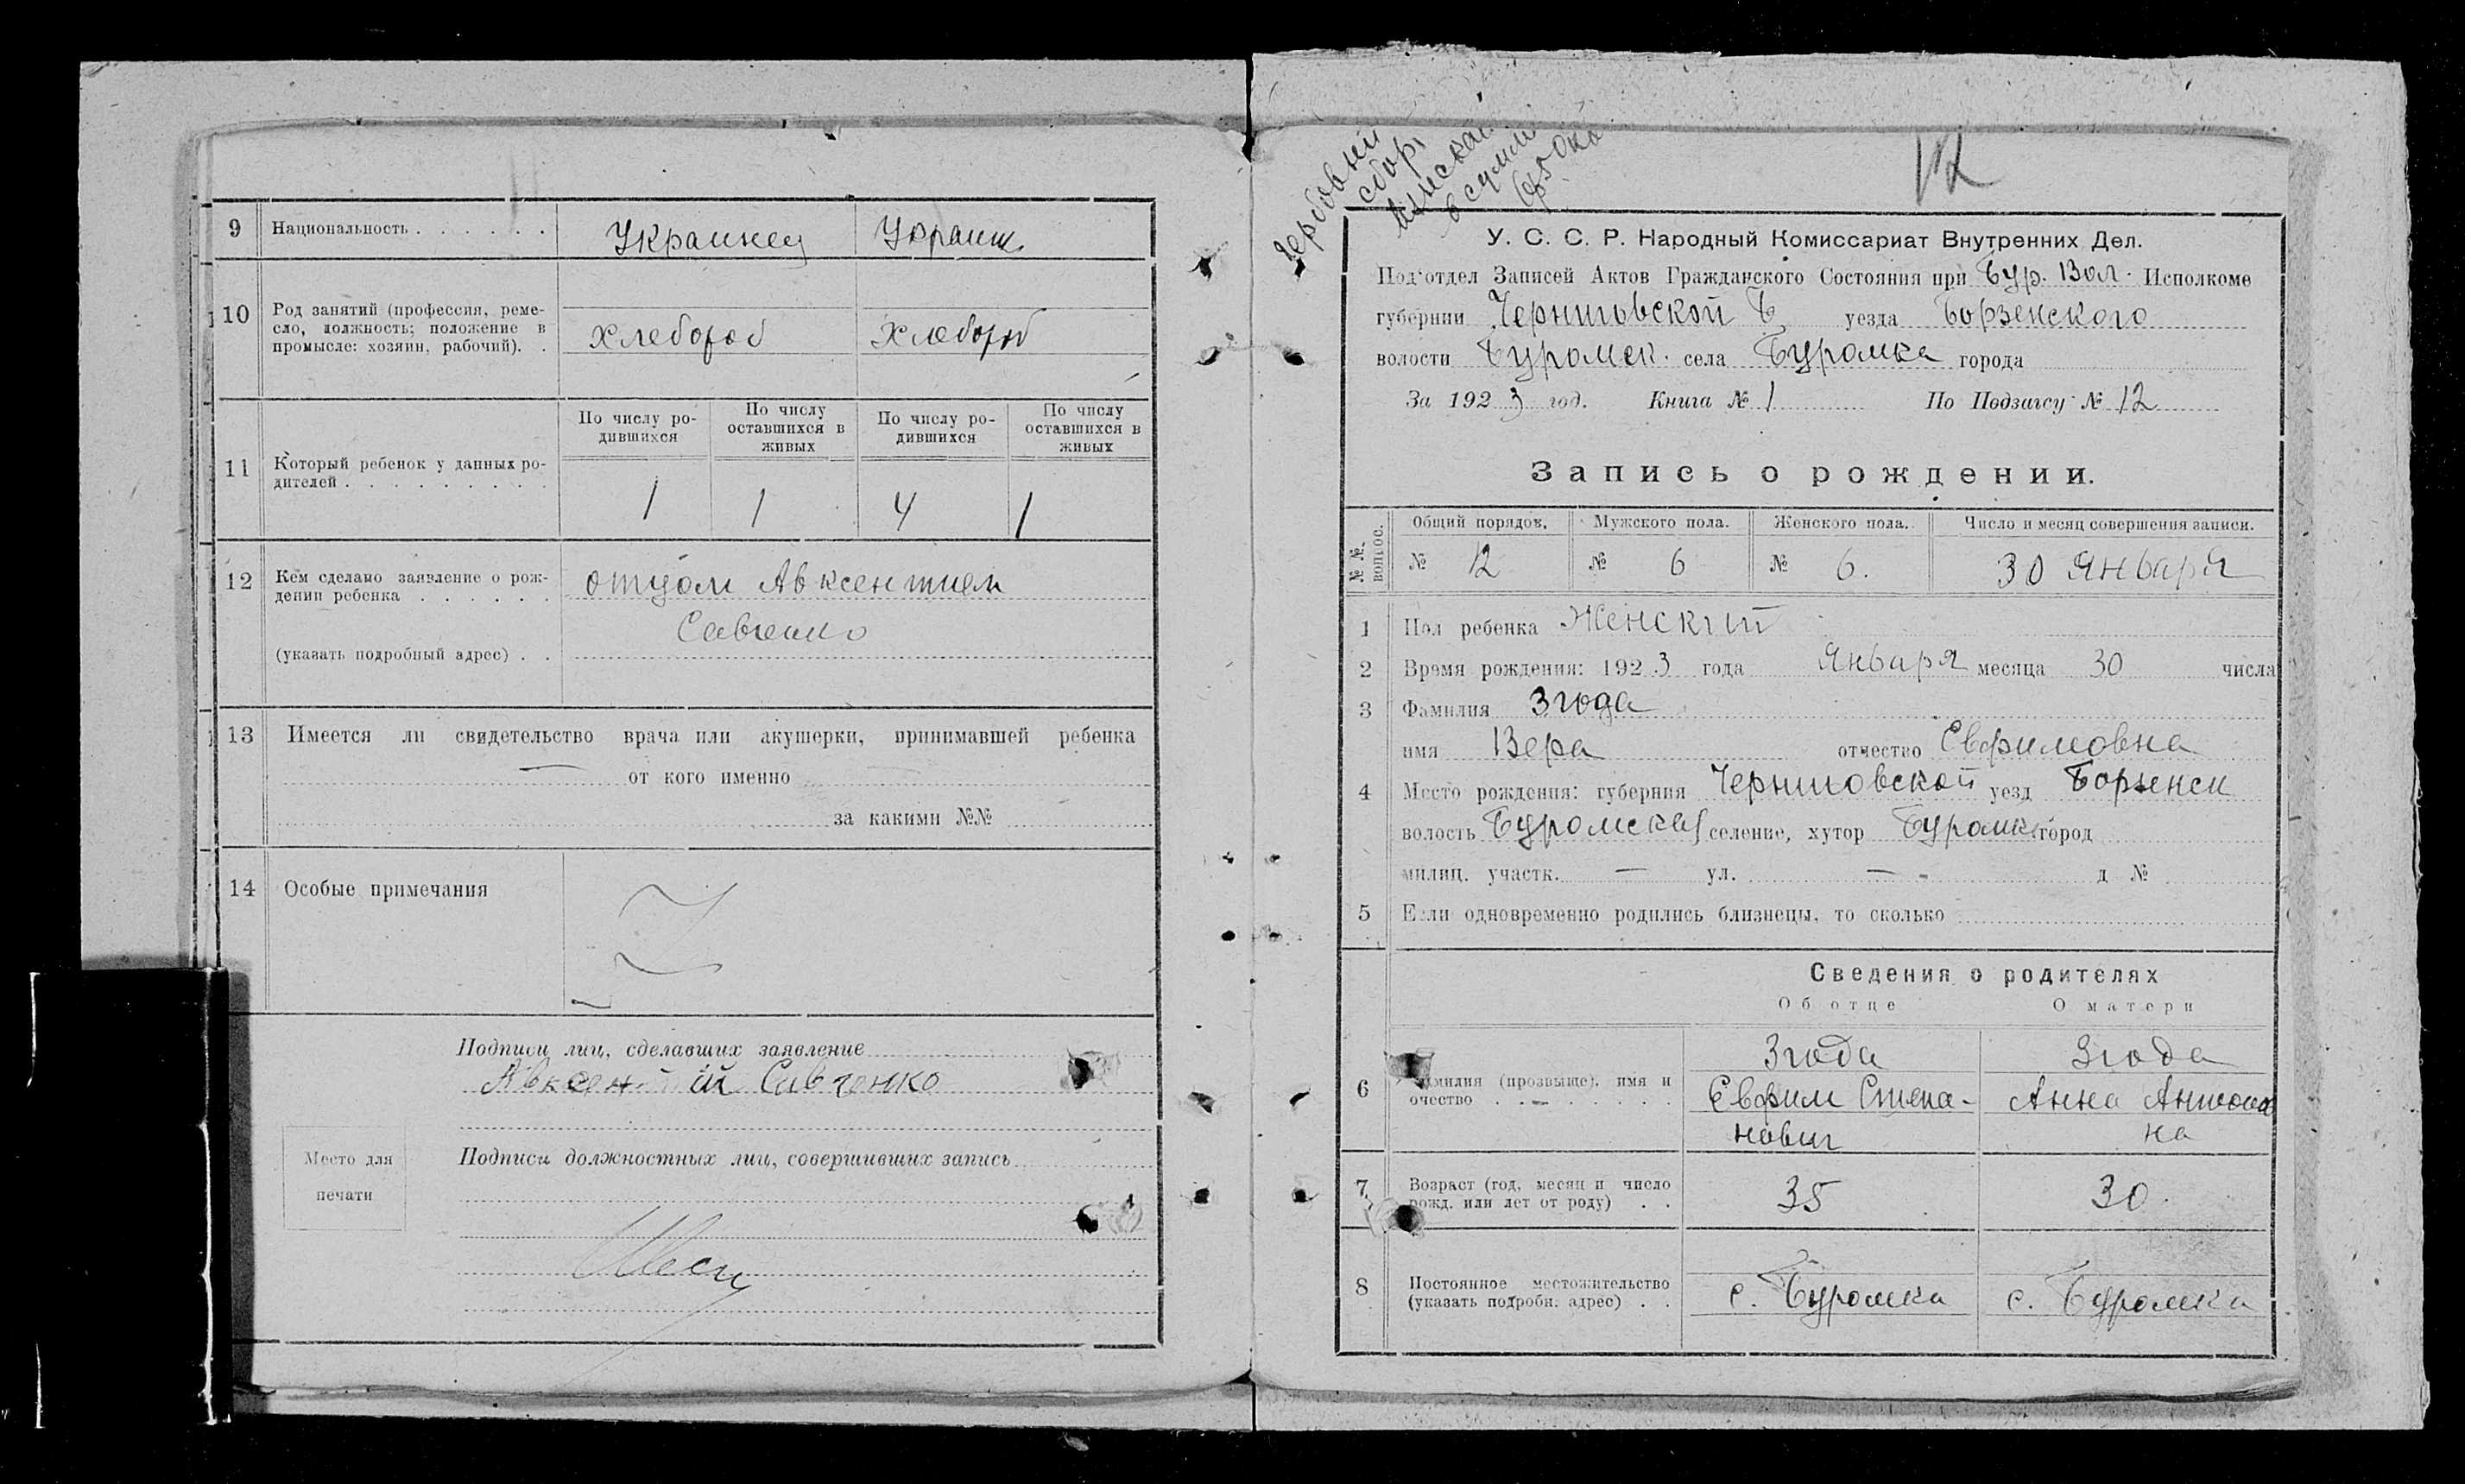 9 Национальность . . . . . . Украинец Украин.
10 Род занятий (профессия, реме-
сло, должность; положение в
промысле: хозяин, рабочий). .
хлебороб хлебороб
По числу ро-
дившихся
По числу
оставшихся в
живых
По числу ро-
дившихся
По числу
оставшихся в
живых
11 Который ребенок у данных ро-
дителей . . . . . . . . .
1 1 4 1
12 Кем сделано заявление о рож-
дении ребенка . . . . . .
отцом Авксентием
Савченко
(указать подробный адрес) . .
13 Имеется ли свидетельство врача или акушерки, принимавшей ребенка
— от кого именно
за какими №№
14 Особые примечания
Z
Подписи лиц, сделавших заявление
Авксентий Савченко
Место для
печати
Подписи должностных лиц, совершивших запись
12
У. С. С. Р. Народный Комиссариат Внутренних Дел.
Под'отдел Записей Актов Гражданского Состояния при Бур. Вол. Исполкоме
губернии Черниговской уезда Борзенского
волости Буромск. села Буромка города
За 1923 год. Книга № 1 По Подзагсу № 12
Запись о рождении.
№№ вопрос.
Общий порядов, Мужского пола. Женского пола. Число и месяц совершения записи.
№ 12 № 6 № 6. 30 Января
1 Пол ребенка Женский
2 Время рождения: 1923 года Января месяца 30 числа
3 Фамилия Згода
имя Вера отчество Евфимовна
4 Место рождения: губерния Черниговской уезд Борзенск
волость Буромская селение, хутор Буромка город
милиц. участк. — ул. — - д №
5 Если одновременно родились близнецы, то сколько
Сведения о родителях
Об отце О матери
6 Фамилия (прозвыще), имя и
очество . . — . . . . .
Згода Згода
Евфим Степа- Анна Антонов
нович на
7 Возраст (год, месяц и число
рожд. или лет от роду) . .
35 30.
8 Постоянное местожительство
(указать подробн. адрес) . .
с. Буромка с. Буромка